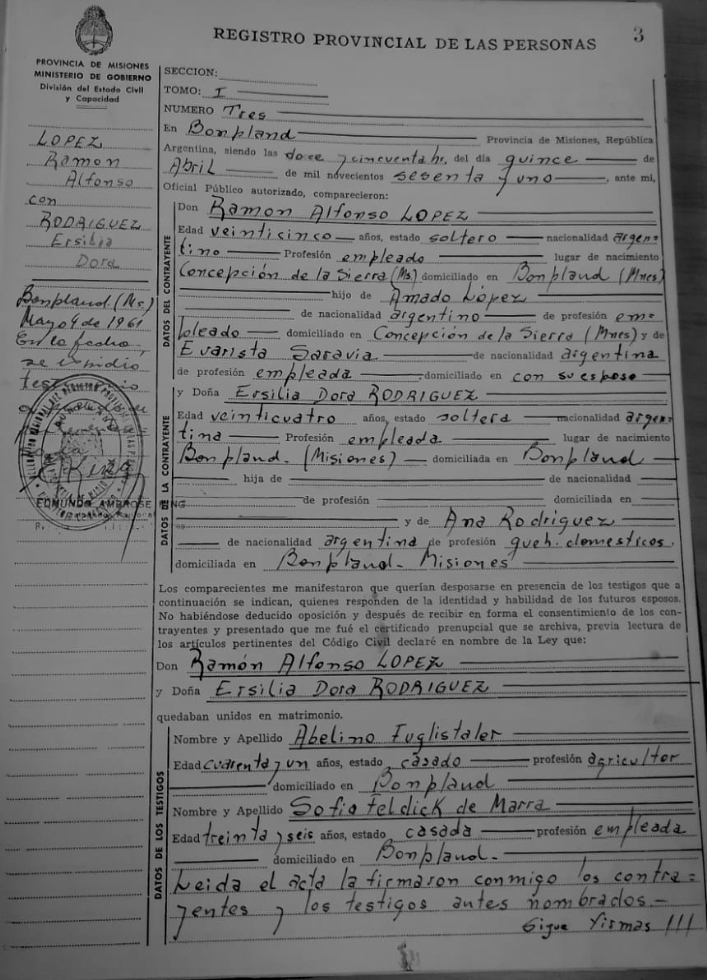 REGISTRO PROVINCIAL DE LAS PERSONAS
3
PROVINCIA DE MISIONES
MINISTERIO DE GOBIERNO
División del Estado Civil
y Capacidad
LOPEZ
Ramon
Alfonso
con
RODRIGUEZ
Ersilia
Dora
Bonpland (Ms.)
Mayo 4 de 1961
En la fecha,
se expidio
EDMUNDO AMBROSE KING
SECCION:
TOMO: I
NUMERO Tres
En Bonpland Provincia de Misiones, República
Argentina, siendo las doce y cincuenta hs. del día quince de
Abril de mil novecientos sesenta y uno, ante mi,
Oficial Público autorizado, comparecieron:
DATOS DEL CONTRAYENTE
Don Ramon Alfonso LOPEZ
Edad veinticinco años, estado soltero nacionalidad argen=
tino Profesión empleado lugar de nacimiento
Concepción de la Sierra (Ms) domiciliado en Bonpland (Mnes)
hijo de Amado López
de nacionalidad argentino de profesión em=
pleado domiciliado en Concepción de la Sierra (Mnes) y de
Evarista Saravia de nacionalidad argentina
de profesión empleada domiciliado en con su esposo
DATOS DE LA CONTRAYENTE
y Doña Ersilia Dora RODRIGUEZ
Edad veinticuatro años, estado soltera nacionalidad argen=
tina Profesión empleada lugar de nacimiento
Bonpland. (Misiones) domiciliada en Bonpland
hija de de nacionalidad
de profesión domiciliado en
y de Ana Rodriguez
de nacionalidad argentina de profesión queh. domesticos
domiciliada en Bonpland - Misiones
Los comparecientes me manifestaron que querían desposarse en presencia de los testigos que a
continuación se indican, quienes responden de la identidad y habilidad de los futuros esposos.
No habiéndose deducido oposición y después de recibir en forma el consentimiento de los con-
trayentes y presentado que me fué el certificado prenupcial que se archiva, previa lectura de
los artículos pertinentes del Código Civil declaré en nombre de la Ley que:
Don Ramón Alfonso LOPEZ
y Doña Ersilia Dora RODRIGUEZ
quedaban unidos en matrimonio.
DATOS DE LOS TESTIGOS
Nombre y Apellido Abelino Fuglistaler
Edad cuarenta y un años, estado casado profesión agricultor
domiciliado en Bonpland
Nombre y Apellido Sofia Feldick de Marra
Edad treinta y seis años, estado casada profesión empleada
domiciliado en Bonpland.-
Leida el acta la firmaron conmigo los contra=
yentes y los testigos antes nombrados -
Sigue Firmas !!!